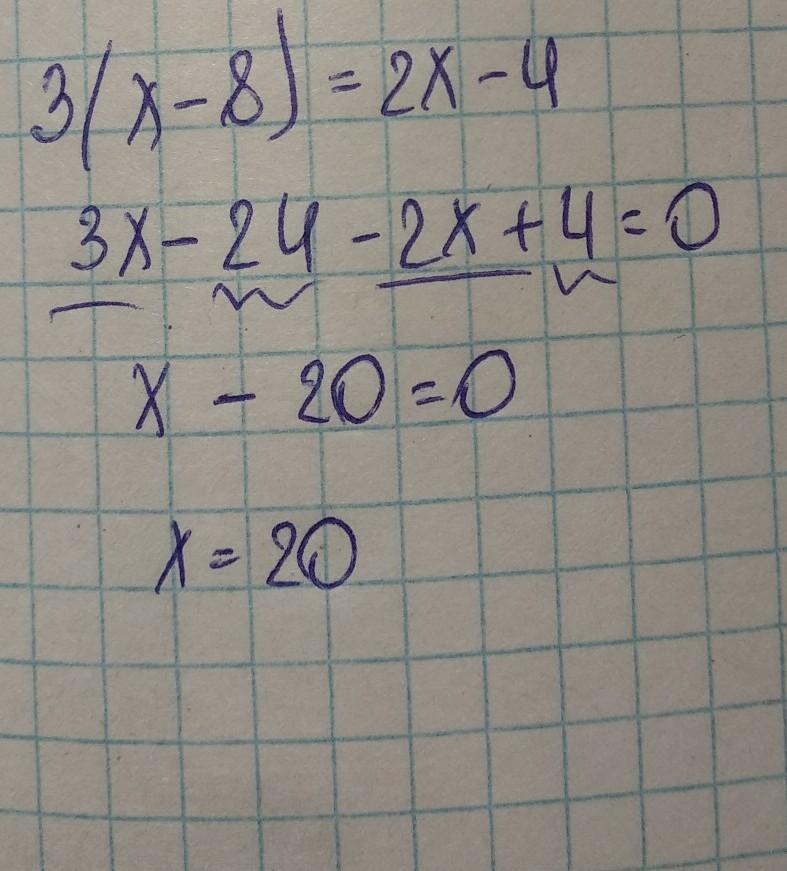 3(x-8)=2x-4
3x-24-2x+4=0
x-20=0
x=20